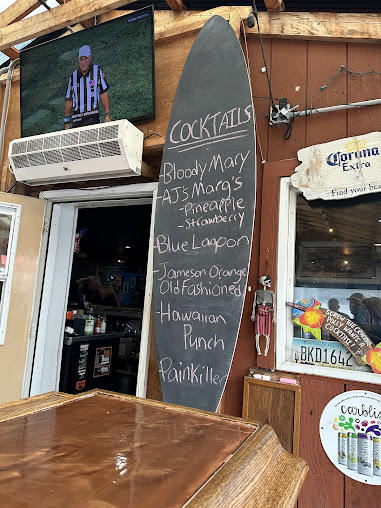 COCKTAILS
-Bloody Mary
-AJ's Marg's
-Pineapple
-Strawberry
-Blue Lagoon
-Jameson Orange
Old Fashioned
-Hawaiian
Punch
-Painkiller
Corona
Extra
Find your bea
BKD1642
carbliss